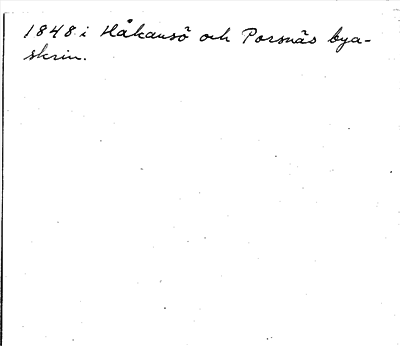 1848 i Håkansö och Porsnäs bya-
skrin.